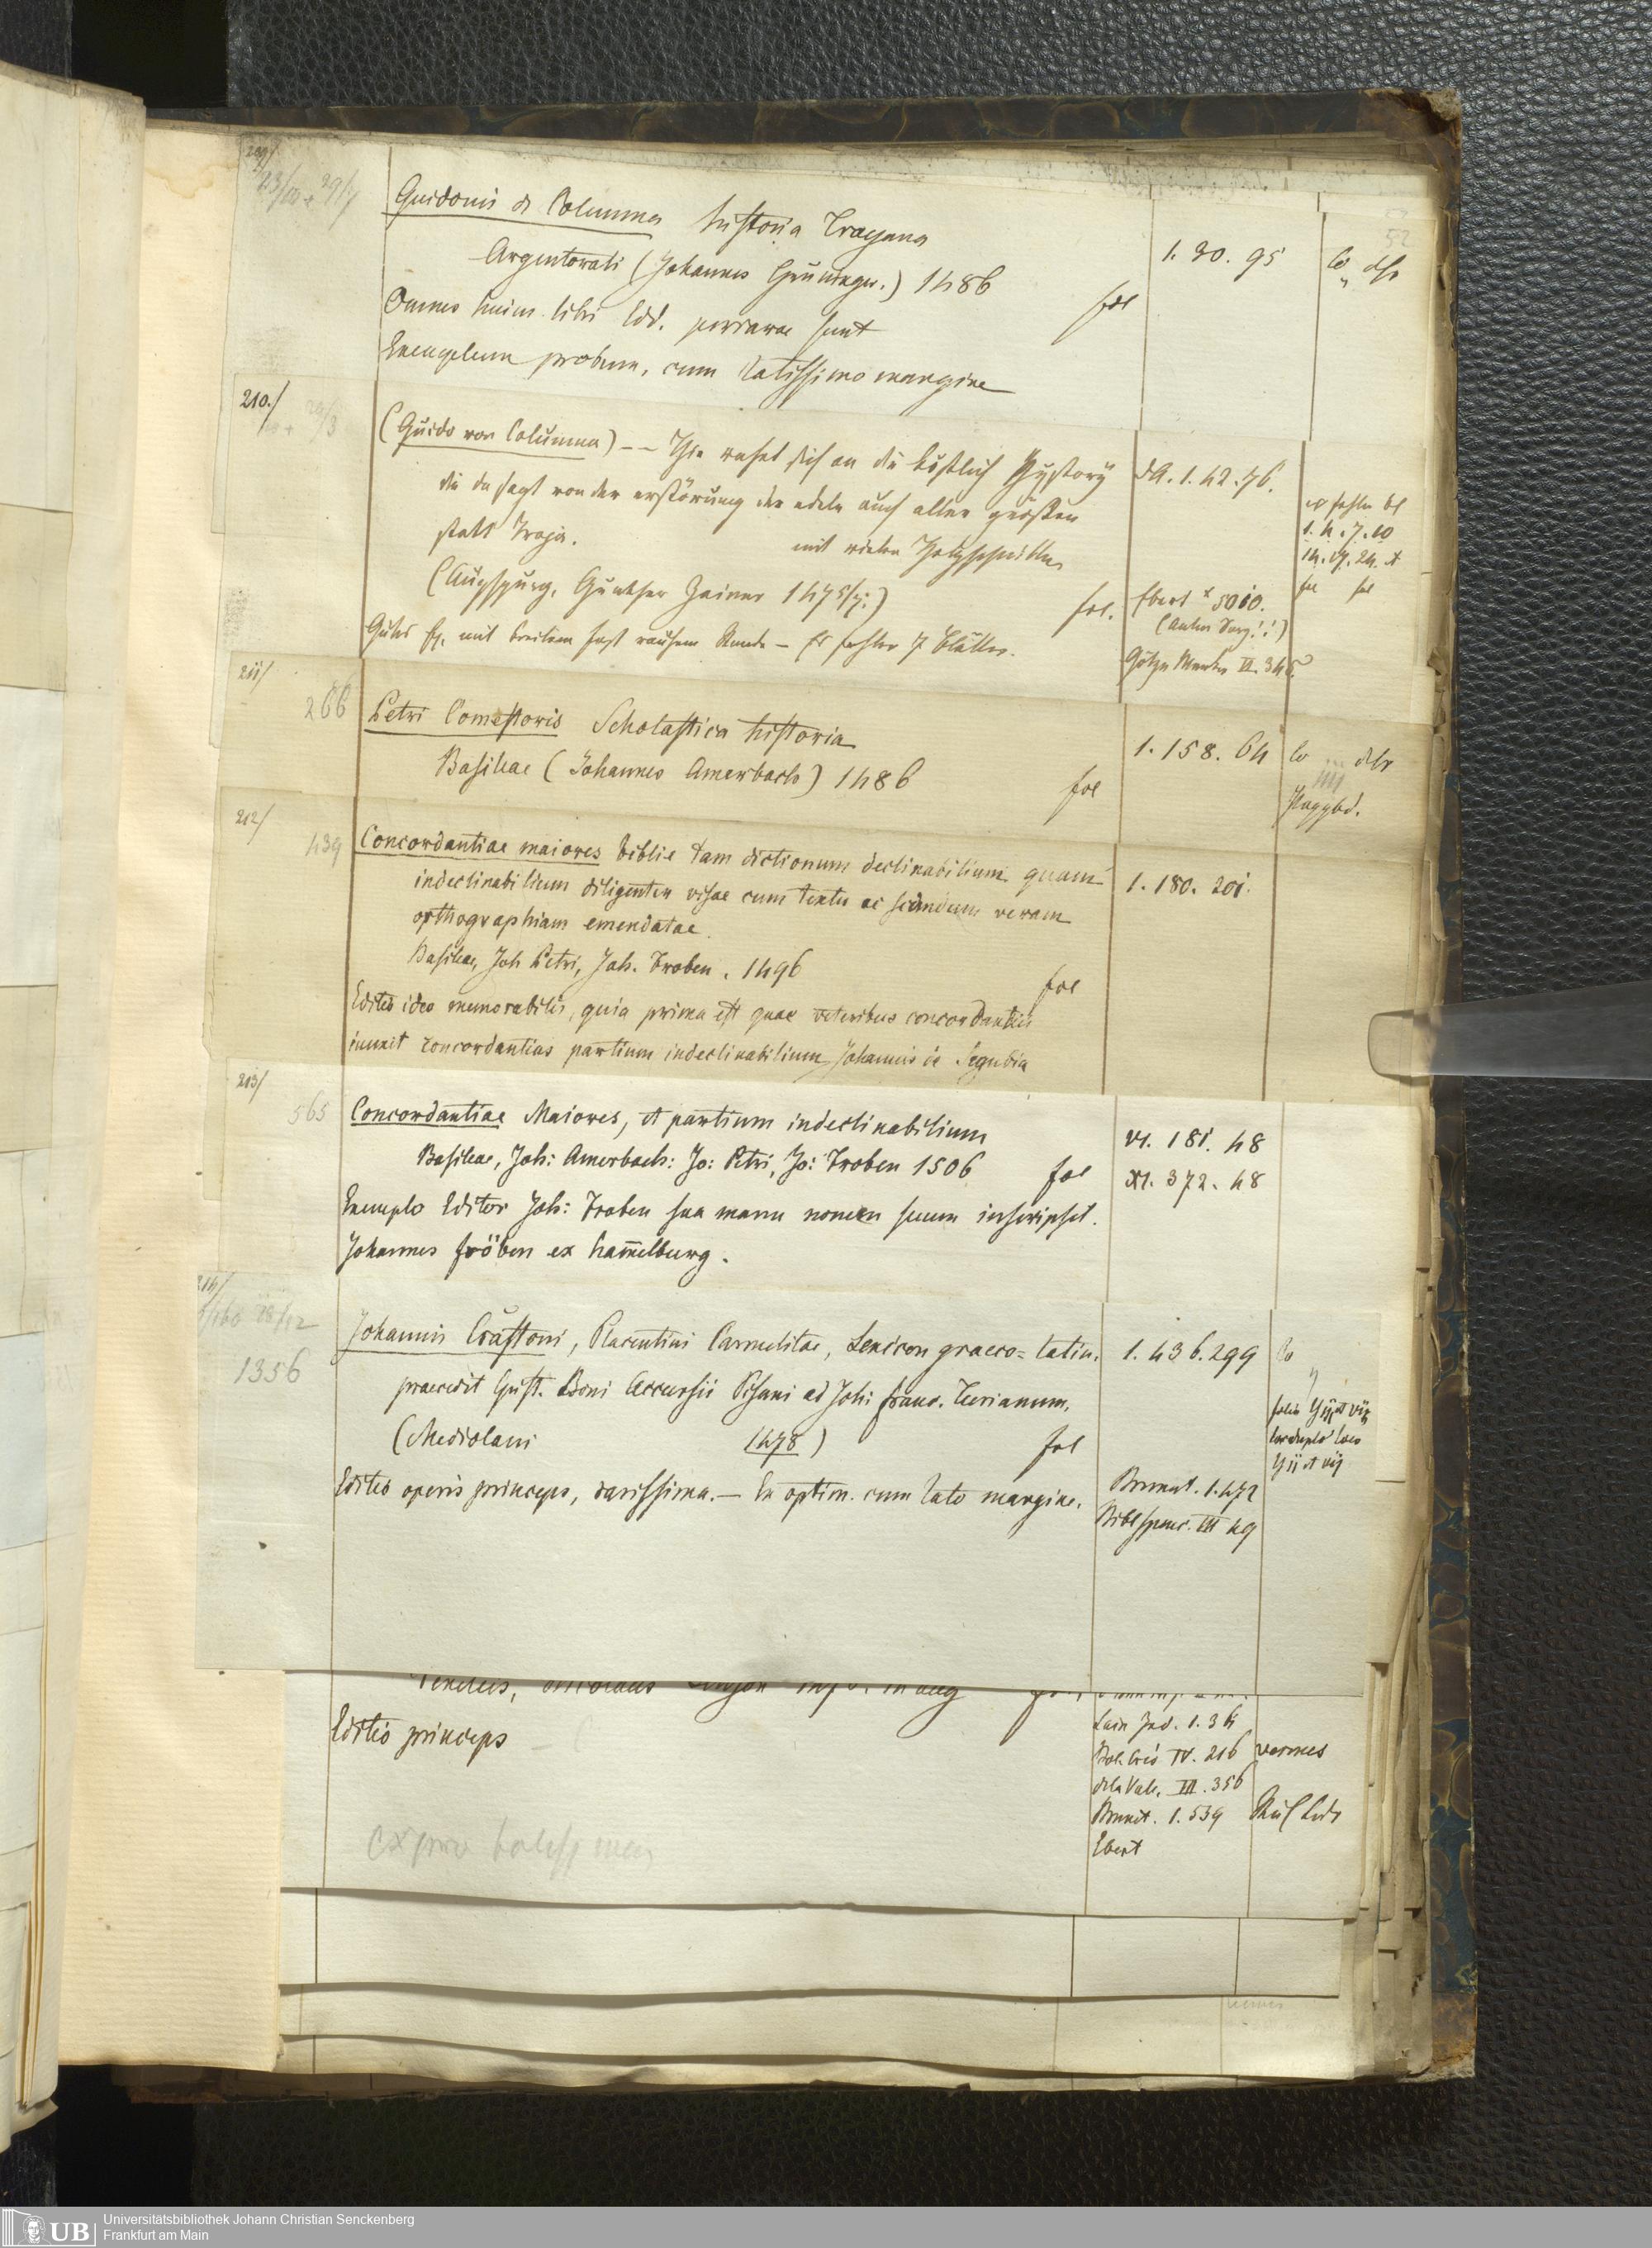 209/
Guidonis de Columna historia Troyana
Argentorati (Johannes Gruninger.) 1486
fol
1. 20. 95
52
Omnes huius libri Edd. perrarae sunt
Exemplum probum, cum latissimo margine
210./
(Guido von Columna) -- Hie vahet sich an die kostlich Hystory
die da sagt von der erstörung der edeln auch aller grösten
statt Troja. mit vielen Holzschnitten
(Augspurg, Gunther Zainer
fol.
Gutes Ex. mit breitem fast rauhem Rande - Es fehlen 7 Blätter.
1. 42. 76.
es fehlen bl
1. 4. 7. 10
Ebert * 5010.
(Anton Sorg!!)
211/
266
Petri Comestoris Scholastica historia
Basileae (Johannes Amerbach) 1486
fol
1. 158. 64
212/
439
Concordantiae maiores biblie tam dictionum declinabilium quam
indeclinabilium diligenter visae cum textu ac secundum veram
orthographiam emendatae.
Basileae, Joh Petri, Joh. Froben. 1496
fol
1. 180. 201.
Editio ideo memorabilis, quia prima est quae veteribus concordantiis
iunxit concordantias partium indeclinabilium Johannis de Segubia
213/
565
Concordantiae Maiores, et partium indeclinabilium
Basileae, Joh: Amerbach: Jo: Petri, Jo: Froben 1506
fol
VI. 181. 48
XI. 372. 48
Exemplo Editor Joh: Froben sua manu nomen suum inscripsit.
Johannes fröben ex ham̄elburg.
214/
1356
Johannis Crastoni, Placentini Carmelitae, Lexicon graeco=latin.
praecedit Epist. Boni Accursii Pisani ad Joh: franc. Turrianum.
(Mediolani 1478)
fol
1. 436. 299
Editio operis princeps, rarissima. — Ex optim. cum lato margine.
Brunet. 1. 472
Bibl Spenc. III 49
Editio princeps
IV. 216
vermes
III. 356
Brunet. 1. 539
Ebert
Universitätsbibliothek Johann Christian Senckenberg
Frankfurt am Main
UB